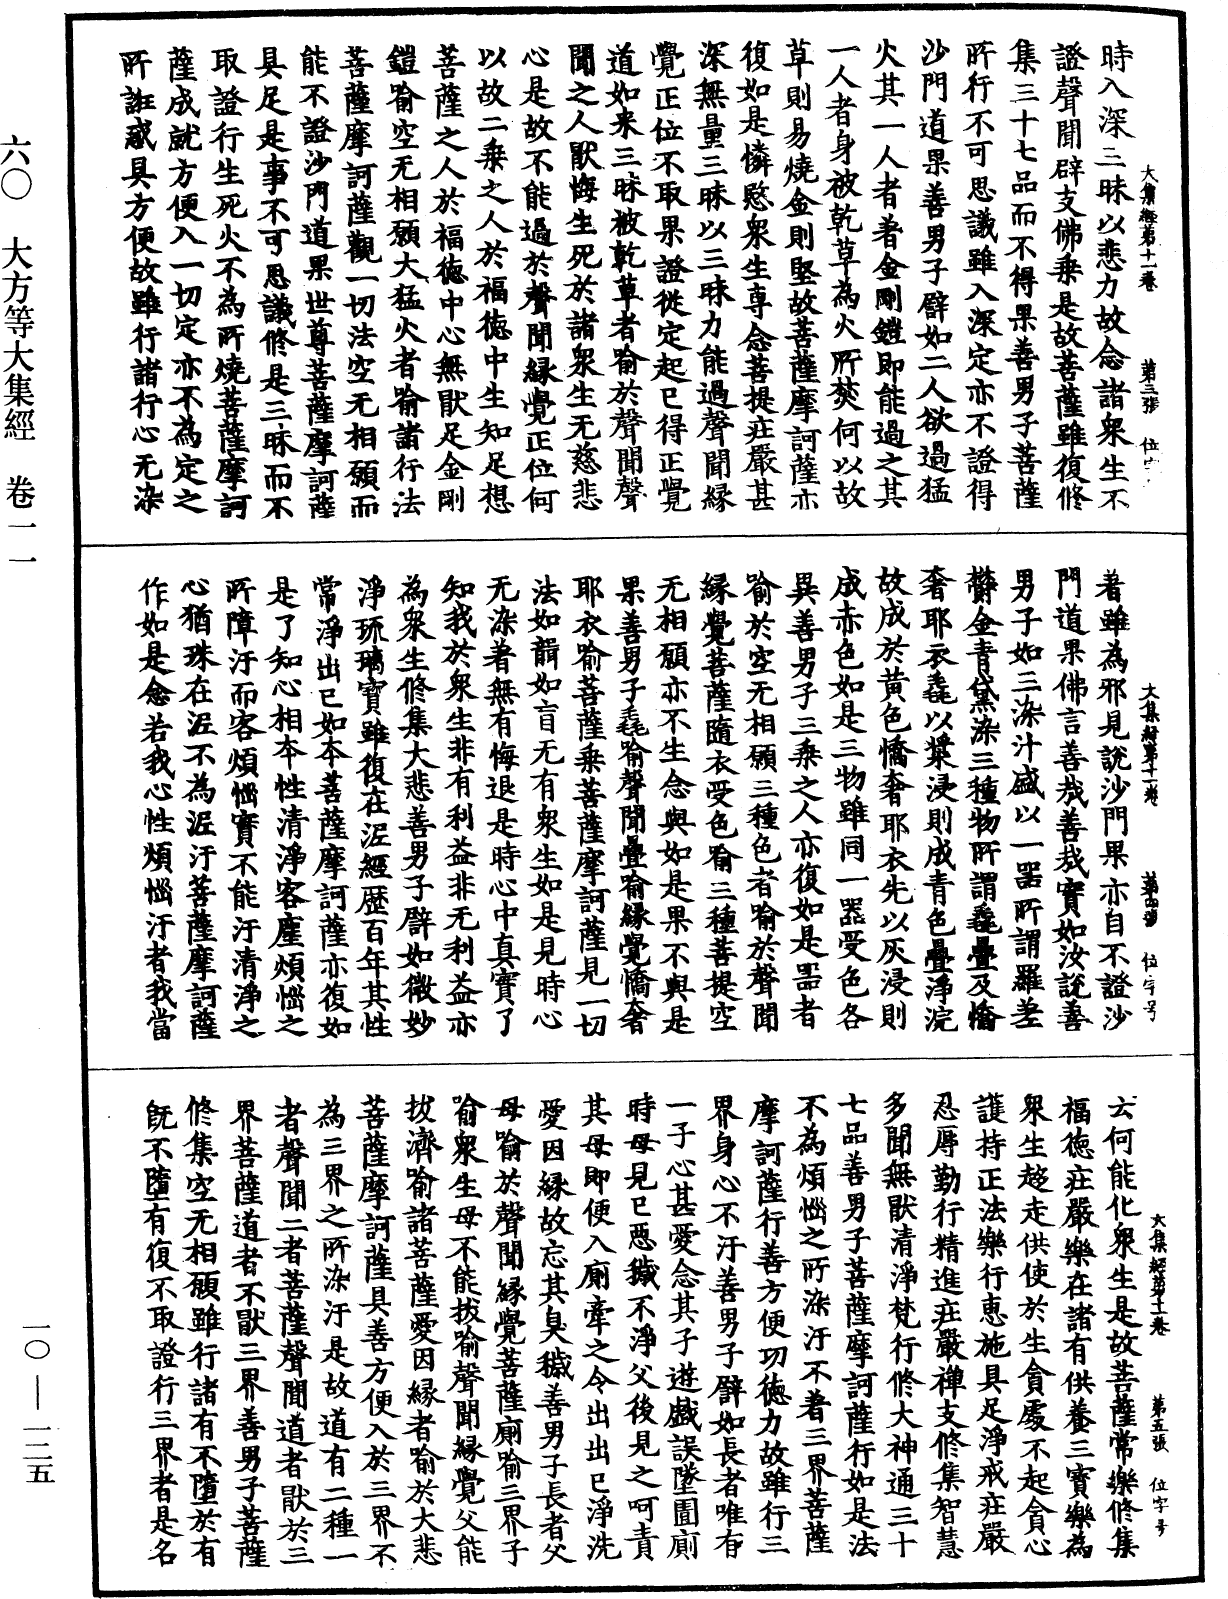 六〇　大方等大集經　卷一一
一〇—一二五
大集經第十一卷　第三張　位字
時入深三昧以悲力故念諸衆生不
證聲聞辟支佛乘是故菩薩雖復修
集三十七品而不得果善男子菩薩
所行不可思議雖入深定亦不證得
沙門道果善男子譬如二人欲過猛
火其一人者著金剛鎧即能過之其
一人者身被乾草為火所焚何以故
草則易燒金則堅故菩薩摩訶薩亦
復如是憐愍衆生專念菩提莊嚴甚
深無量三昧以三昧力能過聲聞緣
覺正位不取果證從定起已得正覺
道如来三昧被乾草者喻於聲聞聲
聞之人猒悔生死於諸衆生无慈悲
心是故不能過於聲聞緣覺正位何
以故二乘之人於福德中生知足想
菩薩之人於福德中心無猒足金剛
鎧喻空无相願大猛火者喻諸行法
菩薩摩訶薩觀一切法空无相願而
能不證沙門道果世尊菩薩摩訶薩
具足是事不可思議修是三昧而不
取證行生死火不為所燒菩薩摩訶
薩成就方便入一切定亦不為定之
所誑惑具方便故雖行諸行心无染
大集經第十一卷　第四張　位字号
著雖為邪見說沙門果亦自不證沙
門道果佛言善哉善哉實如汝說善
男子如三染汁盛以一器所謂羅差
欝金青黛染三種物所謂毳疊及憍
奢耶衣毳以漿浸則成青色疊淨浣
故成於黃色憍奢耶衣先以灰浸則
成赤色如是三物雖同一器受色各
異善男子三乘之人亦復如是器者
喻於空无相願三種色者喻於聲聞
緣覺菩薩隨衣受色喻三種菩提空
无相願亦不生念與如是果不與是
果善男子毳喻聲聞疊喻緣覺憍奢
耶衣喻菩薩乘菩薩摩訶薩見一切
法如聾如盲无有衆生如是見時心
无染著無有悔退是時心中真實了
知我於衆生非有利益非无利益亦
為衆生修集大悲善男子譬如微妙
淨琉璃寶雖復在泥經歷百年其性
常淨出已如本菩薩摩訶薩亦復如
是了知心相本性清淨客塵煩惱之
所障汙而客煩惱實不能汙清淨之
心猶珠在泥不為泥汙菩薩摩訶薩
作如是念若我心性煩惱汙者我當
大集經第十一卷　第五張　位字号
云何能化衆生是故菩薩常樂修集
福德莊嚴樂在諸有供養三寶樂為
衆生趍走供使於生貪處不起貪心
護持正法樂行惠施具足淨戒莊嚴
忍辱勤行精進莊嚴禪支修集智慧
多聞無猒清淨梵行修大神通三十
七品善男子菩薩摩訶薩行如是法
不為煩惱之所染汙不著三界菩薩
摩訶薩行善方便功德力故雖行三
界身心不汙善男子譬如長者唯有
一子心甚愛念其子遊戲誤墜圊廁
時母見已惡穢不淨父後見之呵責
其母即便入廁牽之令出出已淨洗
愛因緣故忘其臭穢善男子長者父
母喻於聲聞緣覺菩薩廁喻三界子
喻衆生母不能拔喻聲聞緣覺父能
拔濟喻諸菩薩愛因緣者喻於大悲
菩薩摩訶薩具善方便入於三界不
為三界之所染汙是故道有二種一
者聲聞二者菩薩聲聞道者猒於三
界菩薩道者不猒三界善男子菩薩
修集空无相願雖行諸有不墮於有
旣不墮有復不取證行三界者是名